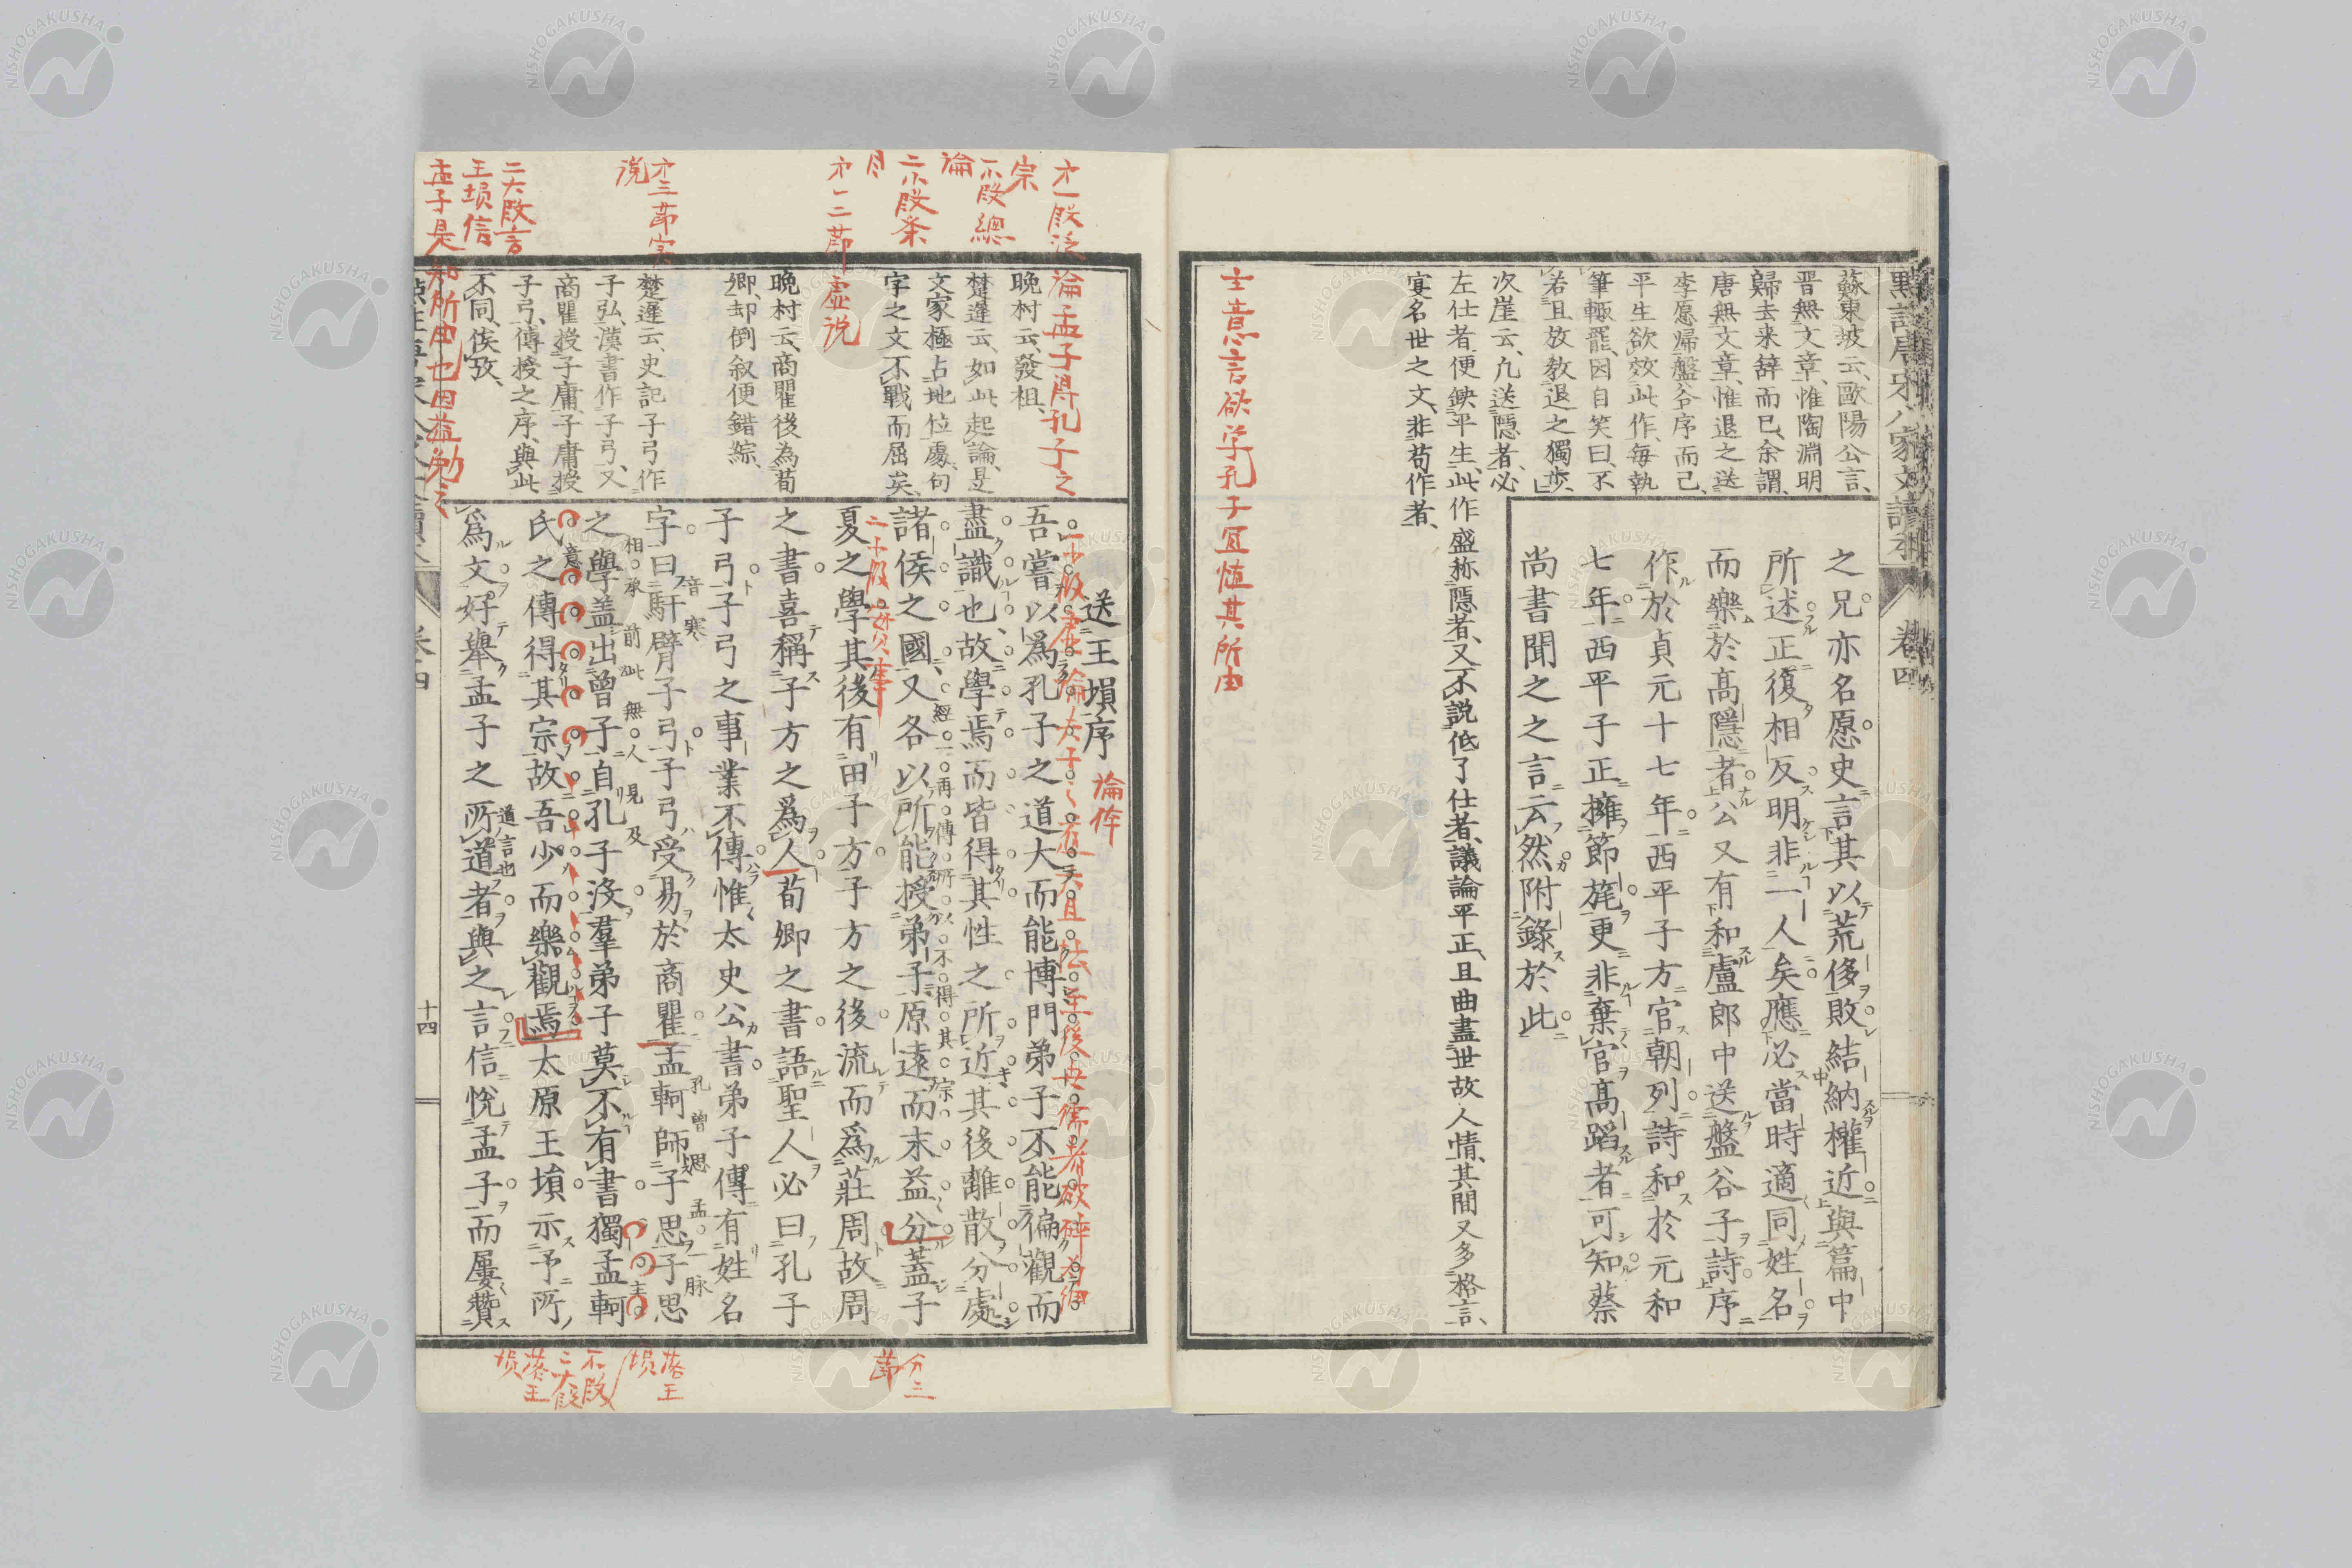 蘇東坡云、歐陽公言、
晋無文章、惟陶淵明
歸去来辞而已、余謂、
唐無文章、惟退之送
李愿歸盤谷序而已、
平生欲效此作、每執
筆輙罷、因自笑曰、不
若且放教退之獨歩、
次崖云、凢送隠者、必
左仕者、便鈌平生、此作盛称隠者、又不説低了仕者、議論平正、且曲盡世故人情、其間又多格言、
寔名世之文、非苟作者、
之兄亦名愿史言其以荒侈敗結納權近與篇中
所述正復相反明非一人矣應必當時適同姓名
而樂於高隱者公又有和盧郎中送盤谷子詩序
作於貞元十七年西平子方官朝列詩和於元和
七年西平子正擁節旄更非棄官高蹈者可知蔡
尚書聞之之言云然附錄於此
士意言欲学孔子冝慎其所由
卷四
晩村云、發祖、
楚遲云、如此起論、是
文家極占地位處、句
字之文、不戰而屈矣、
晩村云、商瞿後為荀
卿、却倒叙便錯綜、
楚遲云、史記子弓作
子弘、漢書作子弓、又
商瞿授子庸、子庸授
子弓、傳授之序、與此
不同、俟攷、
送王塤序
論体
吾嘗以爲孔子之道大而能博門弟子不能徧觀而
盡識也故學焉而皆得其性之所近其後離散分處
諸侯之國又各以所能授弟子原遠而末益分蓋子
夏之學其後有田子方子方之後流而爲莊周故周
之書喜稱子方之爲人荀卿之書語聖人必曰孔子
子弓子弓之事業不傳惟太史公書弟子傳有姓名
字曰馯臂子弓子弓受易於商瞿孟軻師子思子思
之學盖出曾子自孔子沒羣弟子莫不有書獨孟軻
氏之傳得其宗故吾少而樂觀焉太原王塤示予所
爲文好舉孟子之所道者與之言信悅孟子而屢贊
經再傳所以不得其宗
音寒
孔曾思孟一脉
相承前此無人見及
主意
道言也
十四
宗
不段總
論
二小段条
目
第一二莭虚说
第三莭实
说
二大段言
王塤信
孟子是知所由也因益勉之
分三
莭
落王
塤
不段
二大段
落王
塤